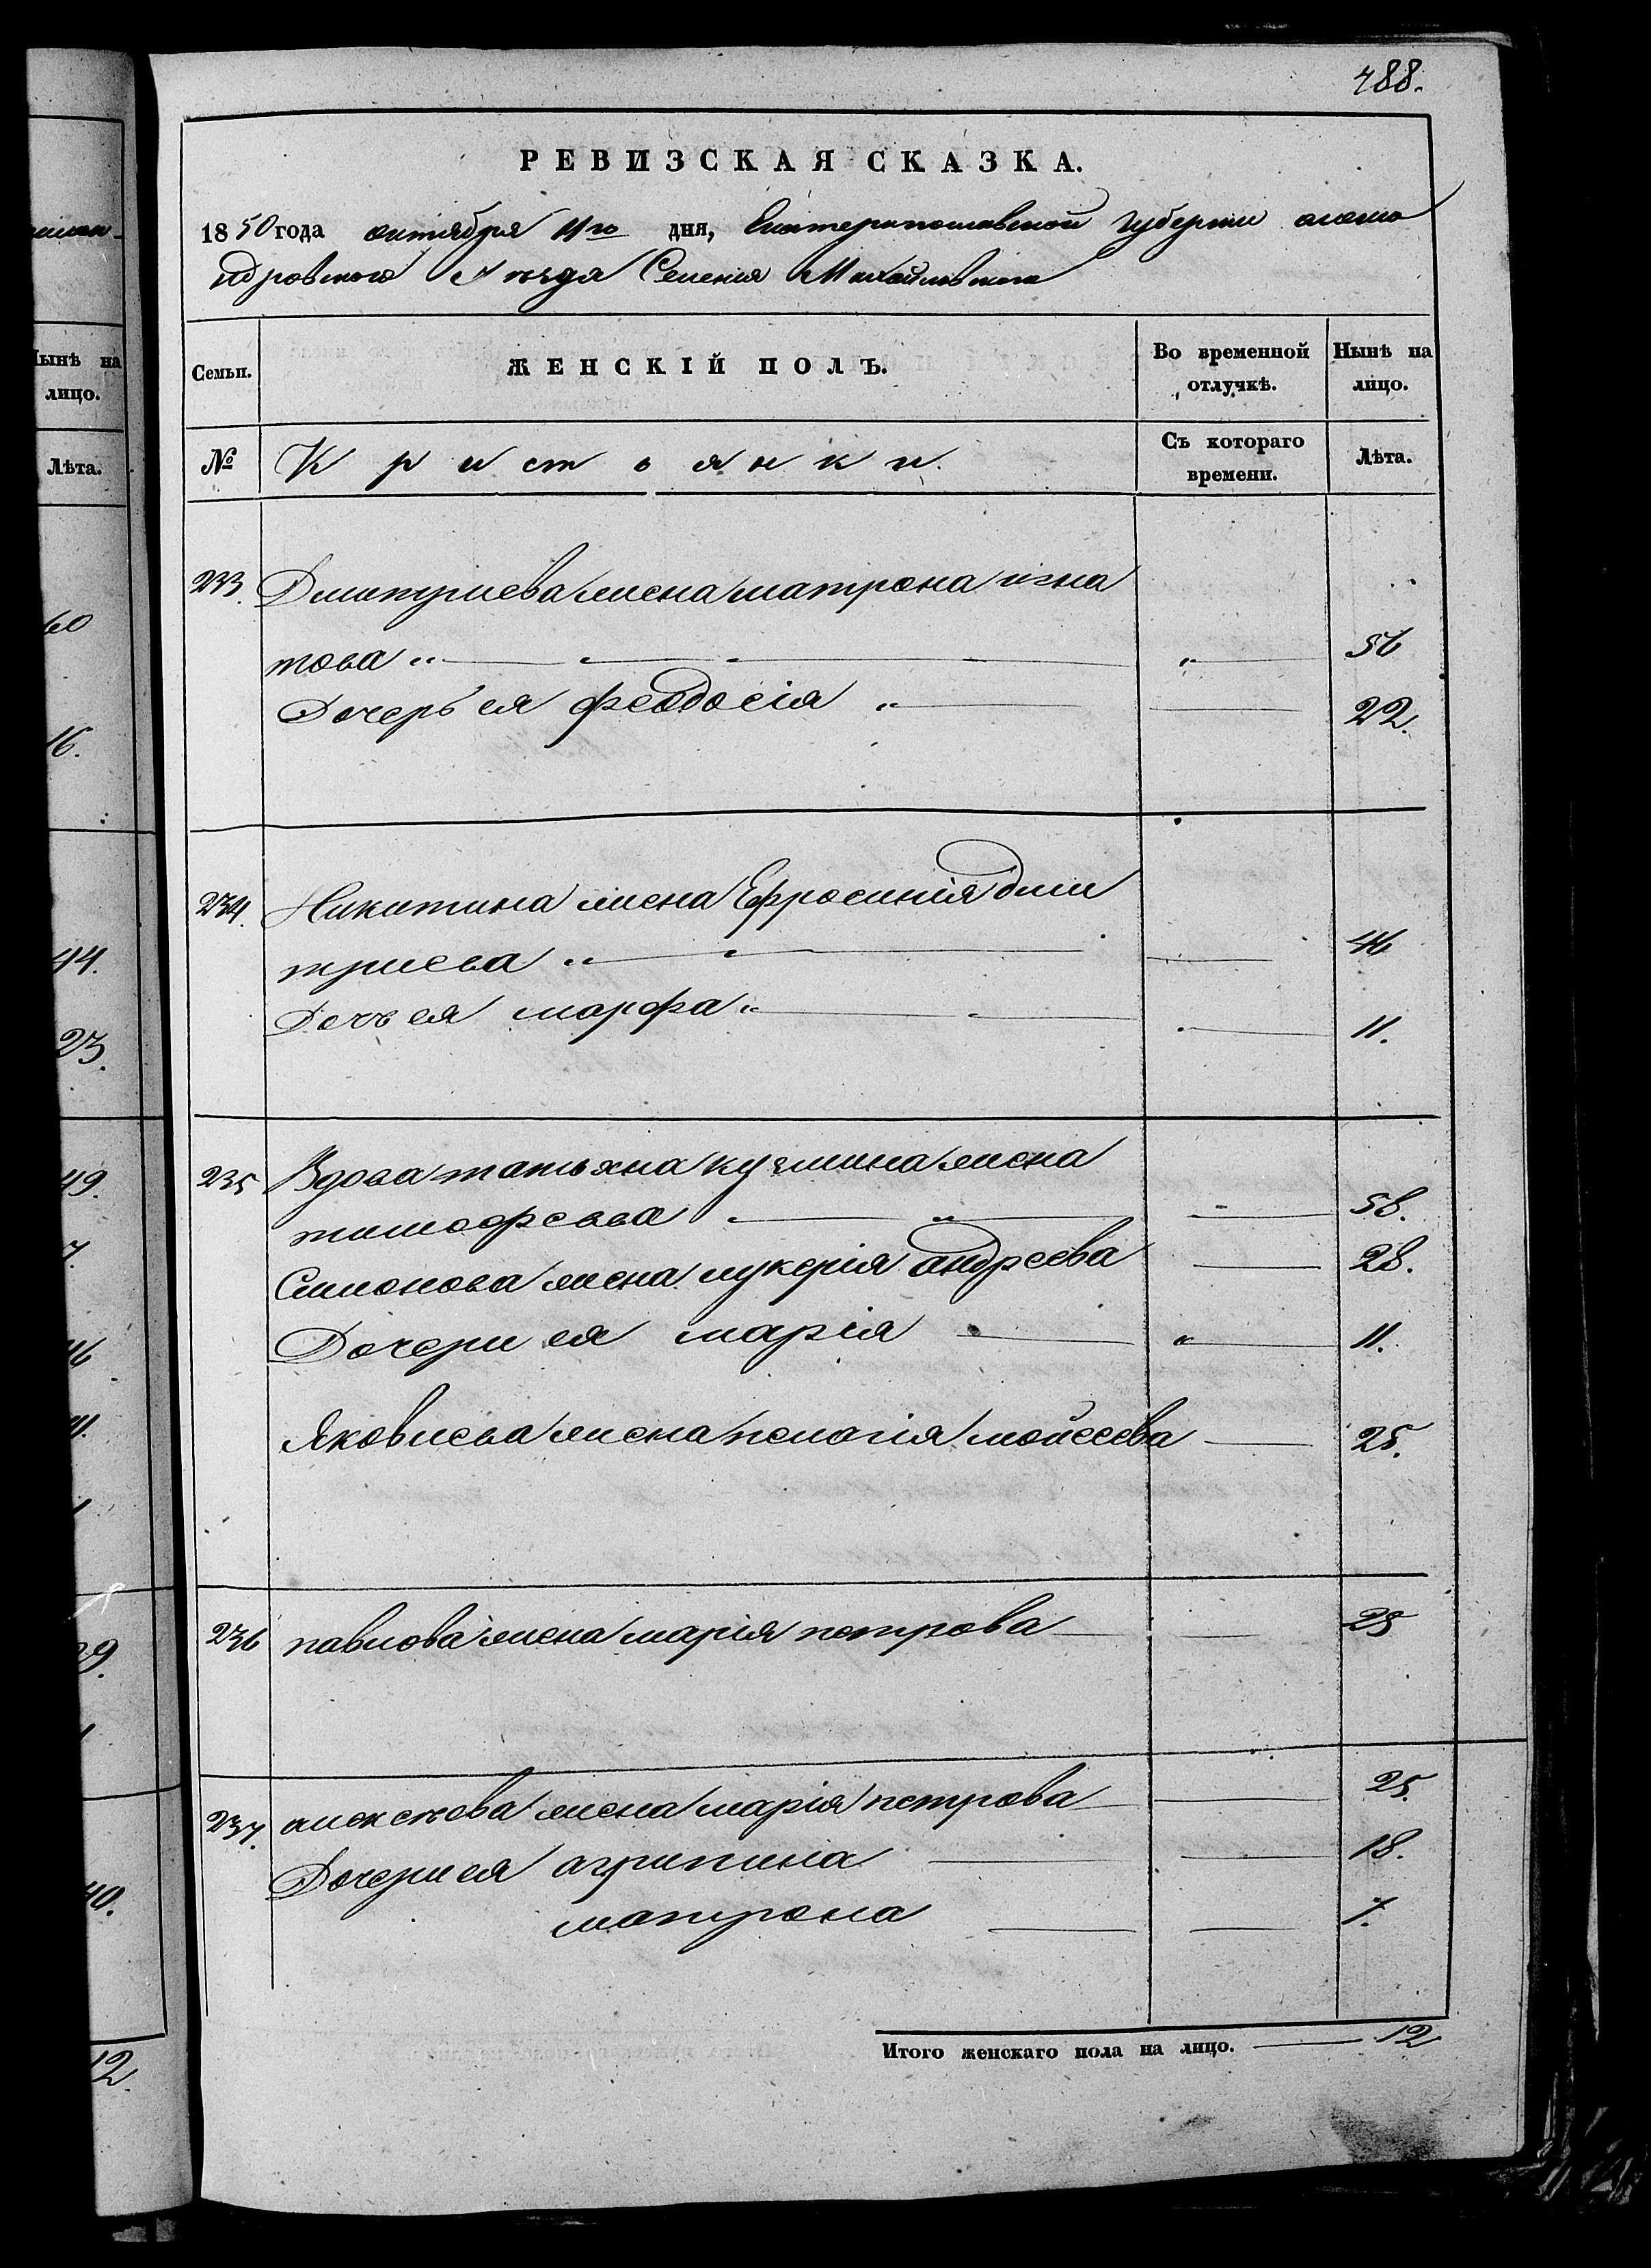 488.
РЕВИЗСКАЯ СКАЗКА.
1850 года октября 11го дня, Екатеринославской губернии алекса
ндровского уѣзда Селения Михайловкии
Семьи. ЖЕНСКІЙ ПОЛЪ. Во временной отлучкѣ. Нынѣ на лицо.
№ Кристьянки. Съ котораго времени. Лѣта.
233. Дмитриева жена матрона игна
това " — " — 56
Дочерь ея феодосія " — 22.
234. Никитина жена Ефросинія дми
триева " — 46
Дочь ея марфа " — 11.
235 Вдова татьяна кузмина жена
тимофеева — " — 58.
Симонова жена лукерія андреева — 28.
Дочери ея марія — " — 11.
Яковлева жена пелагія мойсеева — 25.
236 павлова жена марія петрова — 25
237. алексѣева жена марія петрова — 25.
Дочери ея агрипина — 18.
матрона — 7.
Итого женскаго пола на лицо. — 12
Нынѣ на
лицо.
Лѣта.
60
16.
44.
23.
49.
7.
40.
12.